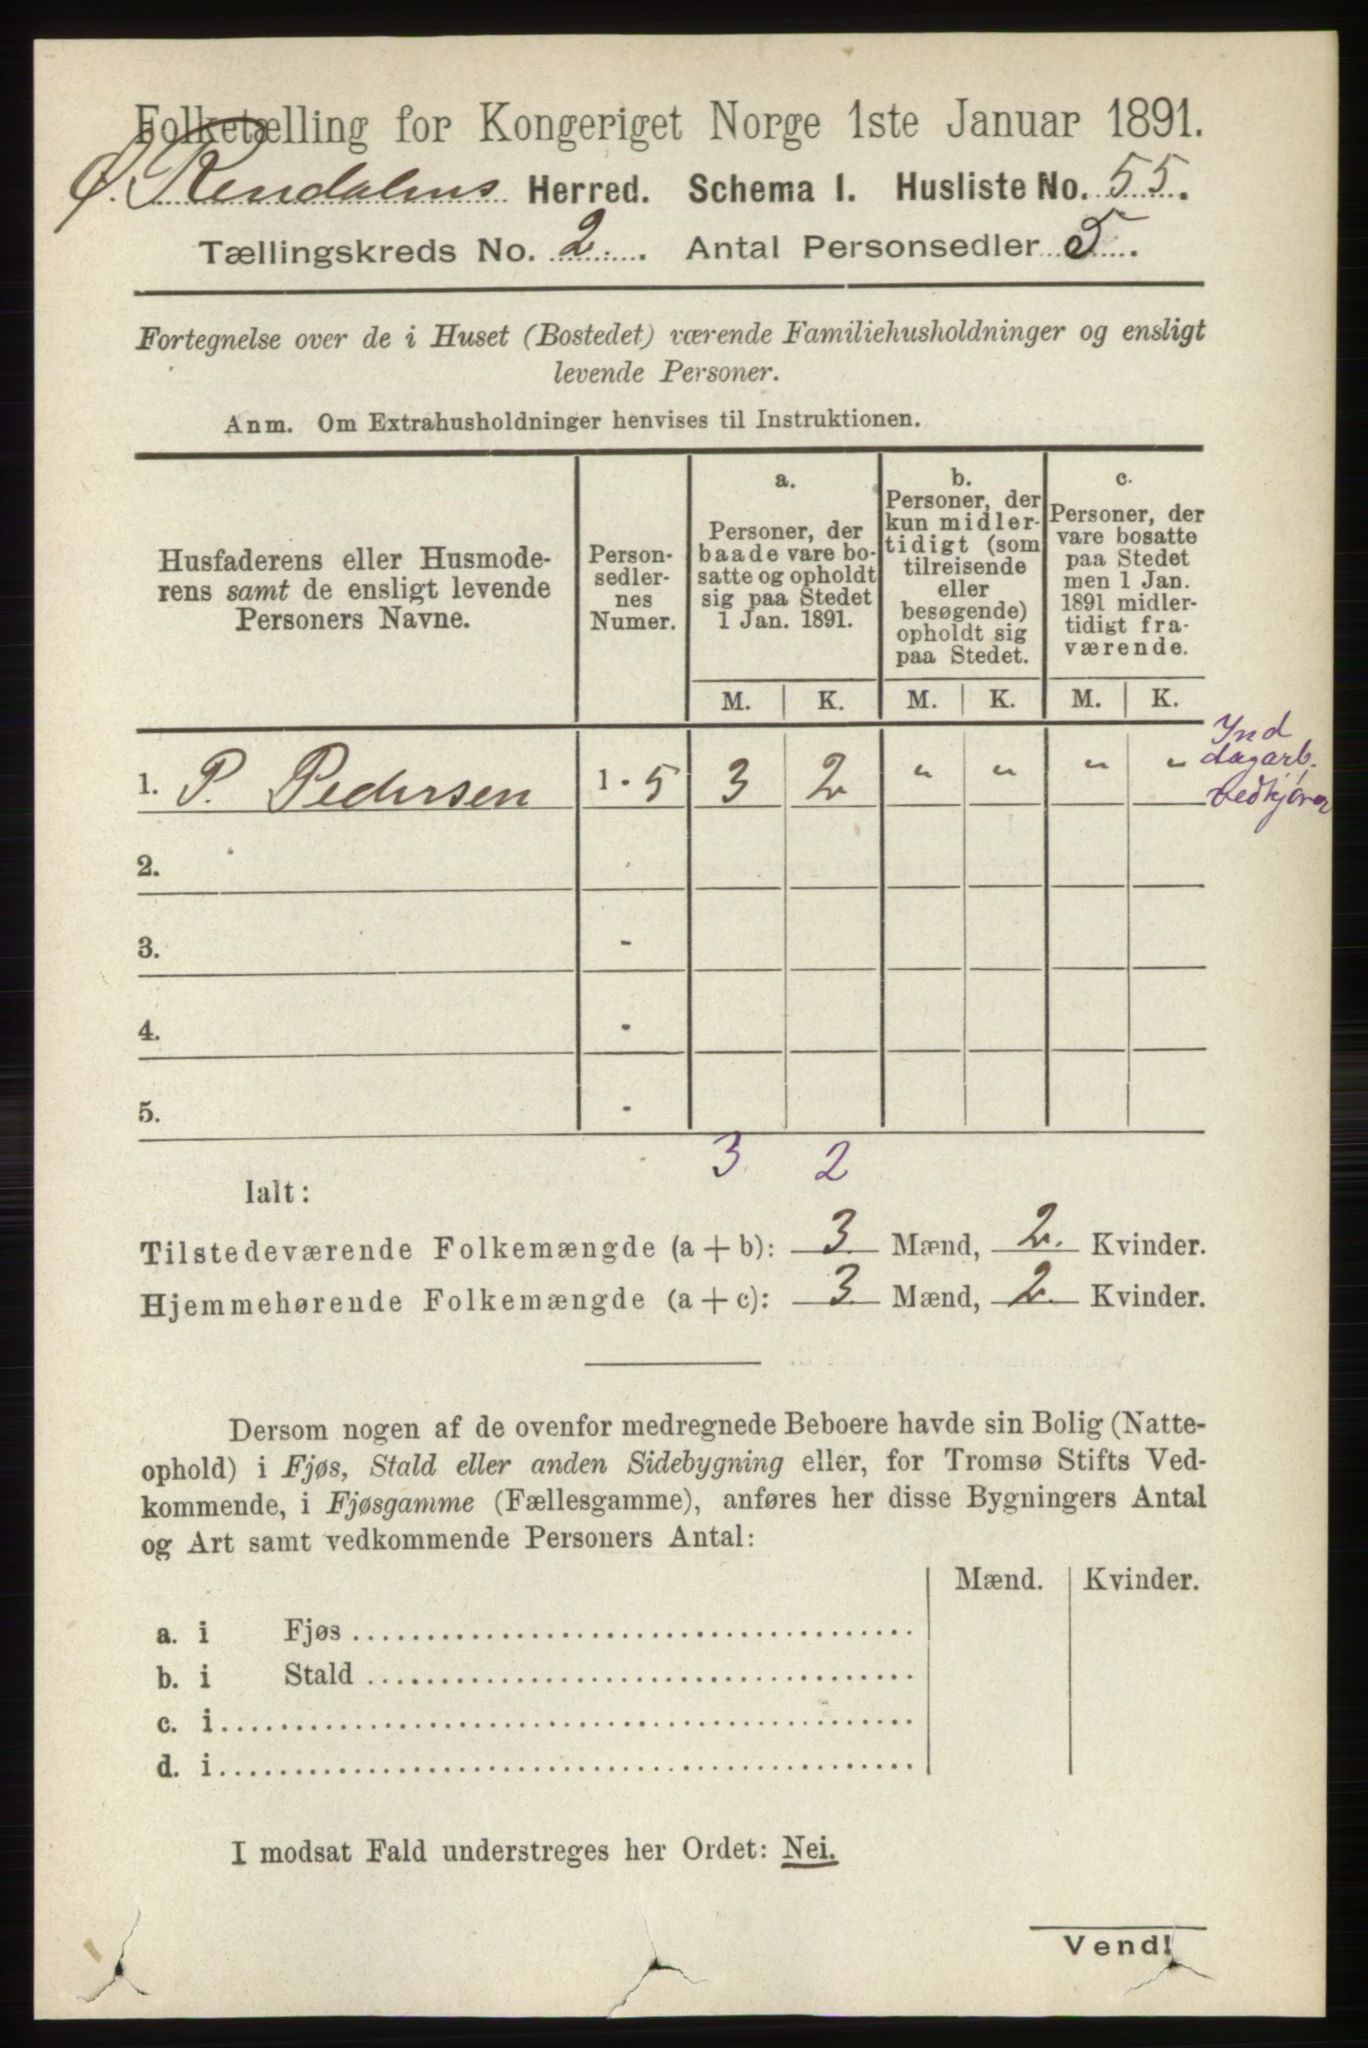 Folketælling for Kongeriget Norge 1ste Januar 1891.
Ø. Rendalens Herred. Schema I. Husliste No. 55.
Tællingskreds No. 2. Antal Personsedler 5.
Fortegnelse over de i Huset (Bostedet) værende Familiehusholdninger og ensligt
levende Personer.
Anm. Om Extrahusholdninger henvises til Instruktionen.
Husfaderens eller Husmode-
rens samt de ensligt levende
Personers Navne.
Person-
sedler-
nes
Numer.
a.
Personer, der
baade vare bo-
satte og opholdt
sig paa Stedet
1 Jan. 1891.
b.
Personer, der
kun midler-
tidigt (som
tilreisende
eller
besøgende)
opholdt sig
paa Stedet.
c.
Personer, der
vare bosatte
paa Stedet
men 1 Jan.
1891 midler-
tidigt fra-
værende.
M. K. M. K. M. K.
1. P. Pedersen 1 - 5 3 2 " " " "
Ind
dagarb.
vedkjører
2.
3. -
4. -
5. -
3 2
Ialt:
Tilstedeværende Folkemængde (a + b): 3 Mænd, 2 Kvinder.
Hjemmehørende Folkemængde (a + c): 3 Mænd, 2 Kvinder.
Dersom nogen af de ovenfor medregnede Beboere havde sin Bolig (Natte-
ophold) i Fjøs, Stald eller anden Sidebygning eller, for Tromsø Stifts Ved-
kommende, i Fjøsgamme (Fællesgamme), anføres her disse Bygningers Antal
og Art samt vedkommende Personers Antal:
Mænd. Kvinder.
a. i Fjøs
b. i Stald
c. i
d. i
I modsat Fald understreges her Ordet: Nei.
Vend!